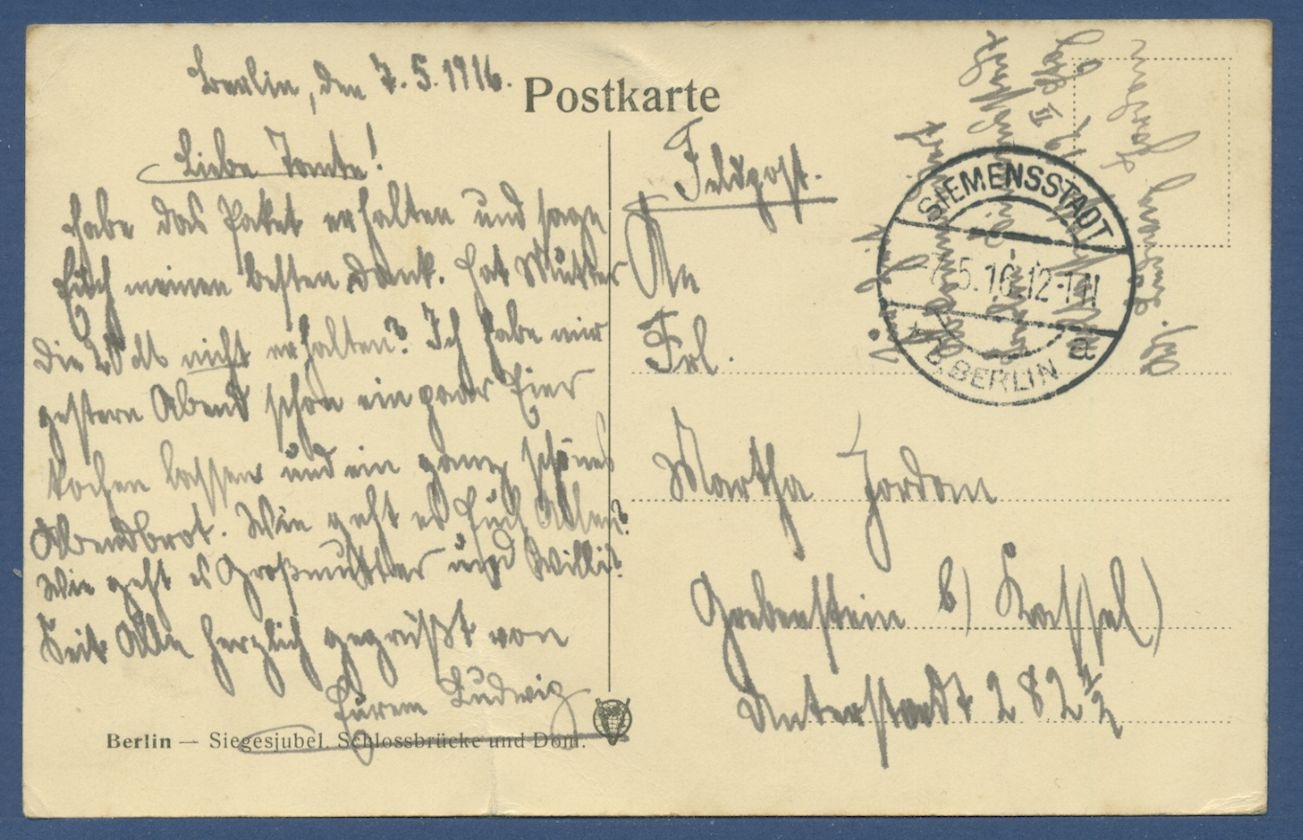 Berlin, den 7.5.1916.
Postkarte
Liebe Tante!
Habe das Paket erhalten und sage
Euch meinen besten Dank. Hat Mutter
die nicht erhalten? Ich habe mir
gestern Abend schon ein paar Eier
kochen lassen und ein ganz schönes
Abendbrot. Wie geht es Euch Allen?
Wie geht es Großmutter und Willi?
Seit Alle herzlich gegrüßt von
Eurem Ludwig
Berlin — Siegesjubel. Schlossbrücke und Dom.
Feldpost.
An
Frl.
Martha Jordan
Grebenstein b) Kassel)
Unterstadt 282 1/2
SIEMENSSTADT
7.5.16.12-1N
* b. BERLIN a